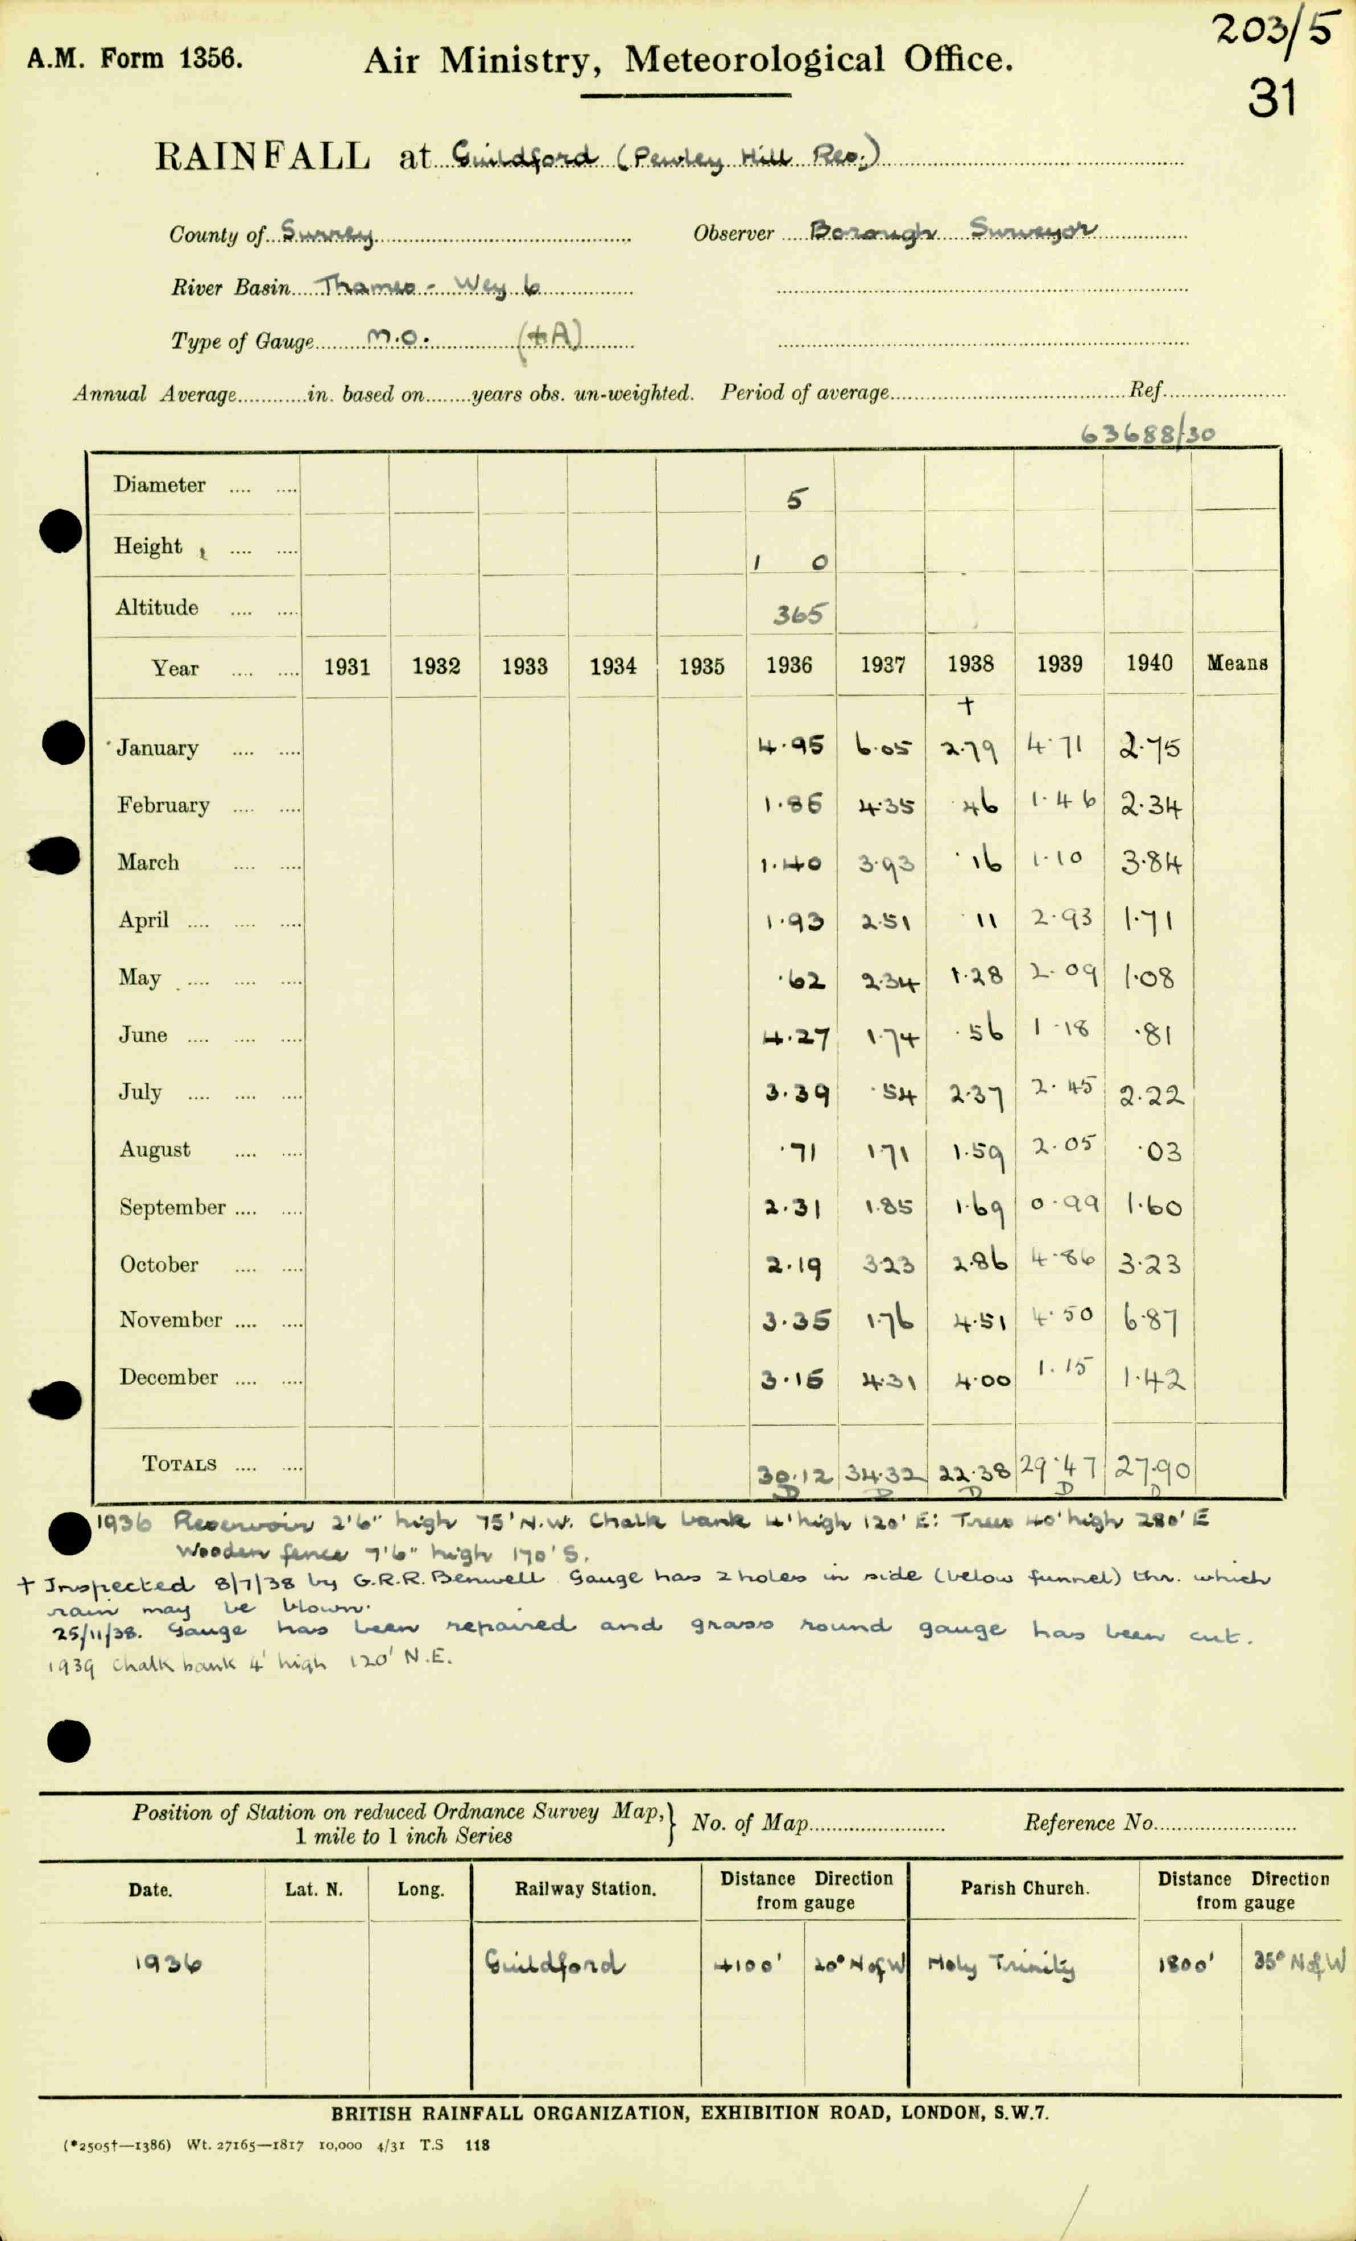 203/5
A.M. Form 1356. Air Ministry, Meteorological Office.
31
RAINFALL at Guildford (Pewley Hill Res.)
County of Surrey Observer Borough Surveyor
River Basin Thames - Wey 6
Type of Gauge M.O. (+A)
Annual Average in. based on years obs. un-weighted. Period of average Ref.
63688/30
Diameter 5
Height 1 0
Altitude 365
Year 1931 1932 1933 1934 1935 1936 1937 1938 1939 1940 Means
+
January 4.95 6.05 2.79 4.71 2.75
February 1.86 4.35 .46 1.46 2.34
March 1.40 3.93 .16 1.10 3.84
April 1.93 2.51 .11 2.93 1.71
May .62 2.34 1.28 2.09 1.08
June 4.27 1.74 .56 1.18 .81
July 3.39 .54 2.37 2.45 2.22
August .71 1.71 1.59 2.05 .03
September 2.31 1.85 1.69 0.99 1.60
October 2.19 3.23 2.86 4.86 3.23
November 3.35 1.76 4.51 4.50 6.87
December 3.15 4.31 4.00 1.15 1.42
TOTALS 30.12 34.32 22.38 29.47 27.90
D D D D D
1936 Reservoir 2'6" high 75' N.W. Chalk bank 4' high 120' E: Trees 40' high 280' E
Wooden fence 7'6" high 170' S.
+ Inspected 8/7/38 by G.R.R. Benwell Gauge has 2 holes in side (below funnel) thr. which
rain may be blown.
25/11/38. Gauge has been repaired and grass round gauge has been cut.
1939 Chalk bank 4' high 120' N.E.
Position of Station on reduced Ordnance Survey Map, } No. of Map Reference No.
1 mile to 1 inch Series
Date. Lat. N. Long. Railway Station. Distance Direction from gauge Parish Church. Distance Direction from gauge
1936 Guildford 4100' 20° N of W Holy Trinity 1800' 35° N of W
BRITISH RAINFALL ORGANIZATION, EXHIBITION ROAD, LONDON, S.W.7.
(*2505†—1386) Wt. 27165—1817 10,000 4/31 T.S 118